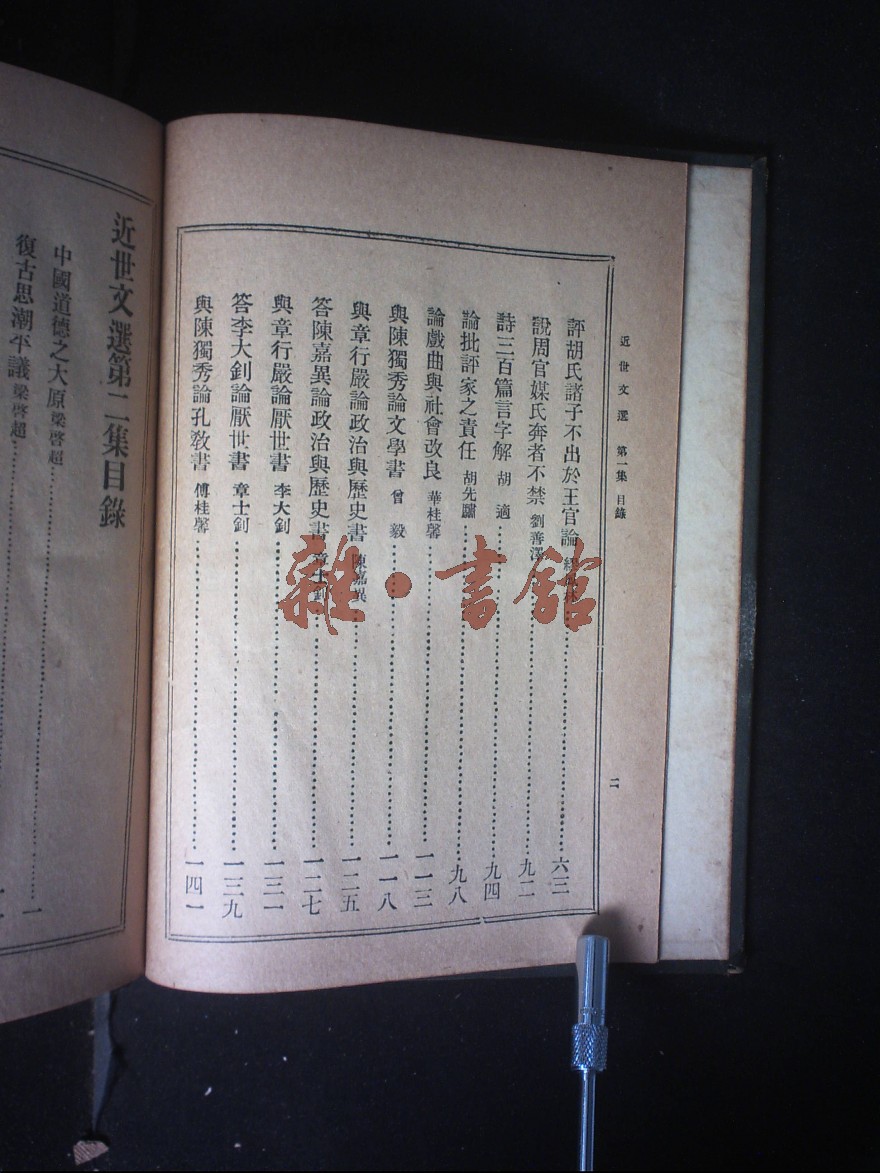 近世文選 第一集 目錄
二
評胡氏諸子不出於王官論 六三
說周官媒氏奔者不禁 劉善澤 九二
詩三百篇言字解 胡適 九四
論批評家之責任 胡先驌 九八
論戲曲與社會改良 華桂馨 一一三
與陳獨秀論文學書 曾毅 一一八
與章行嚴論政治與歷史書 陳嘉異 一二五
答陳嘉異論政治與歷史書 章士釗 一二七
與章行嚴論厭世書 李大釗 一三一
答李大釗論厭世書 章士釗 一三九
與陳獨秀論孔教書 傅桂馨 一四一
近世文選第二集目錄
中國道德之大原 梁啓超 一
復古思潮平議 梁啓超
雜·書館